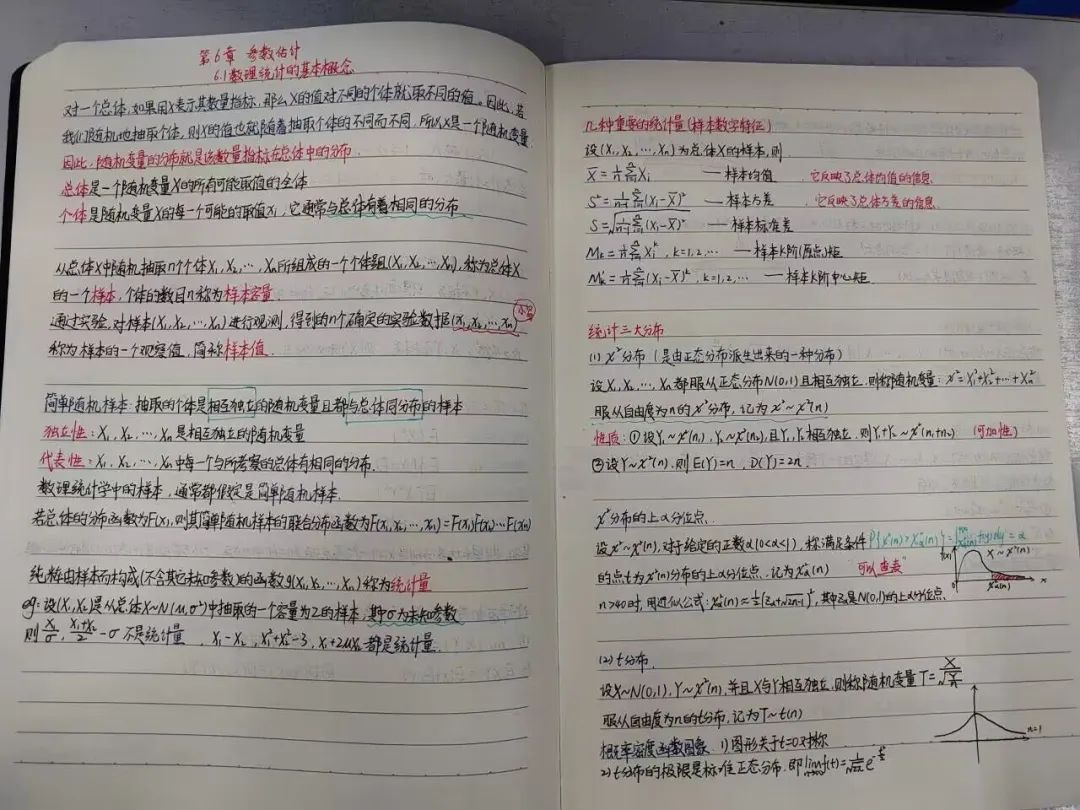 第6章 参数估计
6.1数理统计的基本概念
对一个总体,如果用X表示其数量指标,那么X的值对不同的个体就取不同的值。因此,若
我们随机地抽取个体,则X的值也就随着抽取个体的不同而不同,所以X是一个随机变量
因此,随机变量的分布就是该数量指标在总体中的分布.
总体是一个随机变量X的所有可能取值的全体
个体是随机变量X的每一个可能的取值xi,它通常与总体有着相同的分布
从总体X中随机抽取n个个体X₁,X₂,…,Xn所组成的一个个体组(X₁,X₂,…,Xn),称为总体X
的一个样本,个体的数目n称为样本容量
通过实验,对样本(X₁,X₂,…,Xn)进行观测,得到的n个确定的实验数据(x₁,x₂,…,xn) 小写
称为样本的一个观察值,简称样本值.
简单随机样本:抽取的个体是相互独立的随机变量且都与总体同分布的样本
独立性:X₁,X₂,…,Xn是相互独立的随机变量
代表性:X₁,X₂,…,Xn中每一个与所考察的总体有相同的分布.
数理统计学中的样本,通常都假定是简单随机样本.
若总体的分布函数为F(x),则其简单随机样本的联合分布函数为F(x₁,x₂,…,xn)=F(x₁)F(x₂)…F(xn)
纯粹由样本而构成(不含其它未知参数)的函数g(X₁,X₂,…,Xn)称为统计量
eg:设(X₁,X₂)是从总体X~N(μ,σ²)中抽取的一个容量为2的样本,其中σ为未知参数
则 X₁/σ, (X₁+X₂)/2-σ 不是统计量, X₁-X₂, X₁²+X₂²-3, X₁+2μX₂都是统计量.
几种重要的统计量(样本数字特征)
设(X₁,X₂,…,Xn)为总体X的样本,则
X̄=1/n Σᵢ₌₁ⁿ Xi ——样本均值 ,它反映了总体均值的信息.
S²=1/(n-1) Σᵢ₌₁ⁿ (Xi-X̄)² ——样本方差 ,它反映了总体方差的信息.
S=√(1/(n-1) Σᵢ₌₁ⁿ (Xi-X̄)²) ——样本标准差
Mk=1/n Σᵢ₌₁ⁿ Xiᵏ, k=1,2,… ——样本k阶(原点)矩
Mk'=1/n Σᵢ₌₁ⁿ (Xi-X̄)ᵏ, k=1,2,… ——样本k阶中心矩.
统计三大分布
(1) χ²分布(是由正态分布派生出来的一种分布)
设X₁,X₂,…,Xn都服从正态分布N(0,1)且相互独立,则称随机变量:χ²=X₁²+X₂²+…+Xn²
服从自由度为n的χ²分布,记为χ²~χ²(n)
性质:①设Y₁~χ²(n₁),Y₂~χ²(n₂),且Y₁,Y₂相互独立,则Y₁+Y₂~χ²(n₁+n₂) (可加性)
②设Y~χ²(n),则E(Y)=n, D(Y)=2n.
χ²分布的上α分位点.
设χ²~χ²(n),对于给定的正数α(0<α<1),称满足条件P{χ²(n)>χ²α(n)}=∫f(y)dy=α
的点t为χ²(n)分布的上α分位点,记为χ²α(n) 可以查表
f(x) X~χ²(n) 0 χ²α(n) x
n>40时,用近似公式:χ²α(n)≈½(zα+√(2n-1))²,其中zα是N(0,1)的上α分位点.
(2) t分布.
设X~N(0,1),Y~χ²(n),并且X与Y相互独立,则称随机变量T=X/√(Y/n)
服从自由度为n的t分布,记为T~t(n)
概率密度函数图象. 1)图形关于t=0对称 n=1
2)t分布的极限是标准正态分布.即lim f(t)=1/√2π e^(-t²/2)